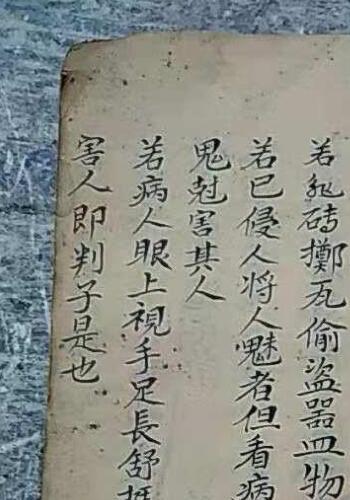 若能磚擲瓦偷盜器皿物
若已侵人將人魅者但看病
鬼尅害其人
若病人眼上視手足長舒
害人即判子是也